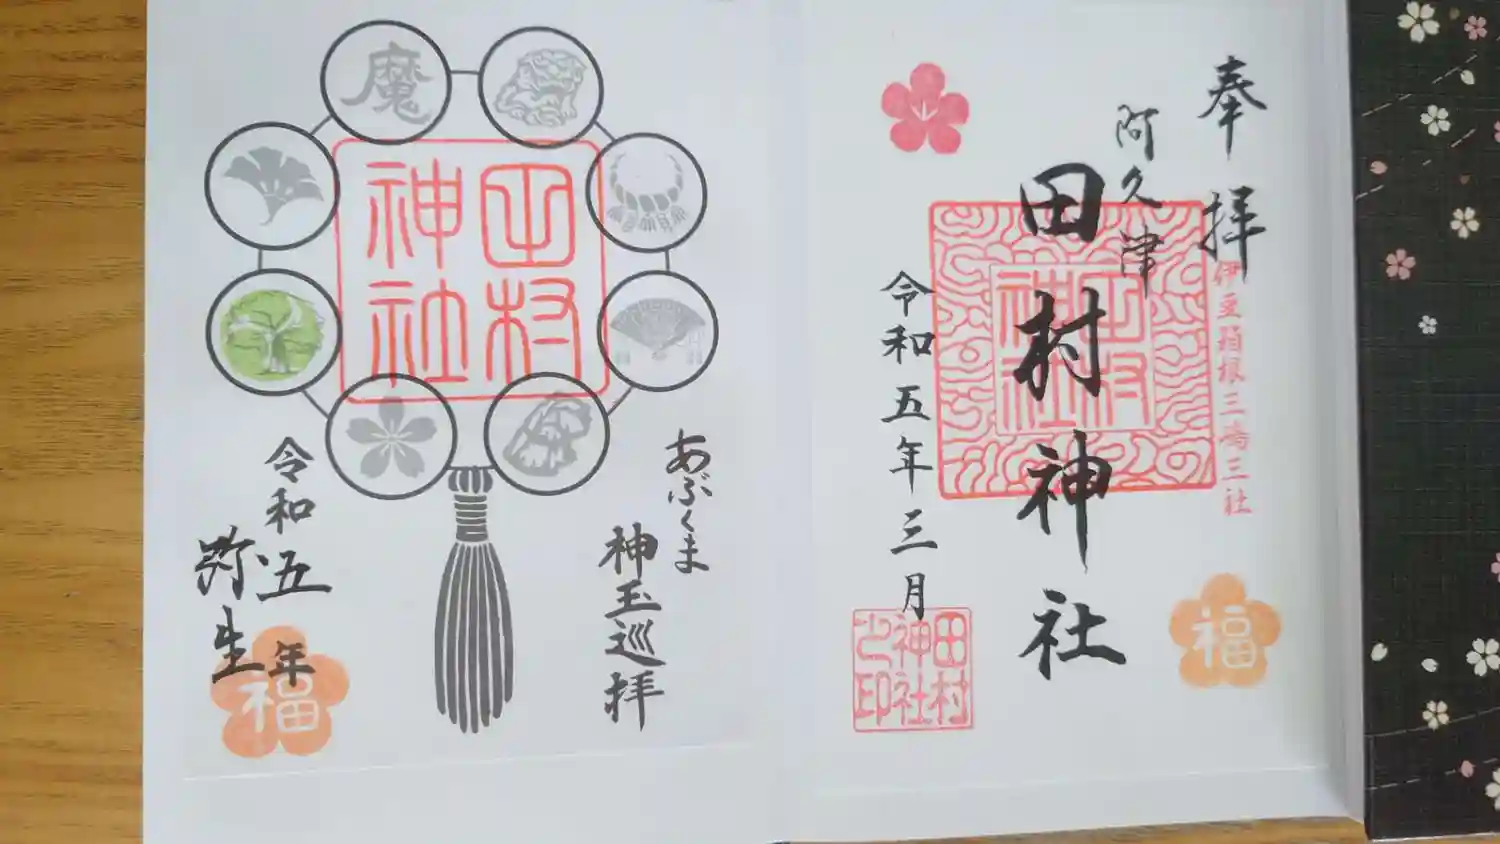 奉拝
伊豆箱根三嶋三社
阿久津
田村神社
田村神社
令和五年三月
田村神社之印
福
あぶくま
神玉巡拝
田村神社
魔
令和五年
弥生
福